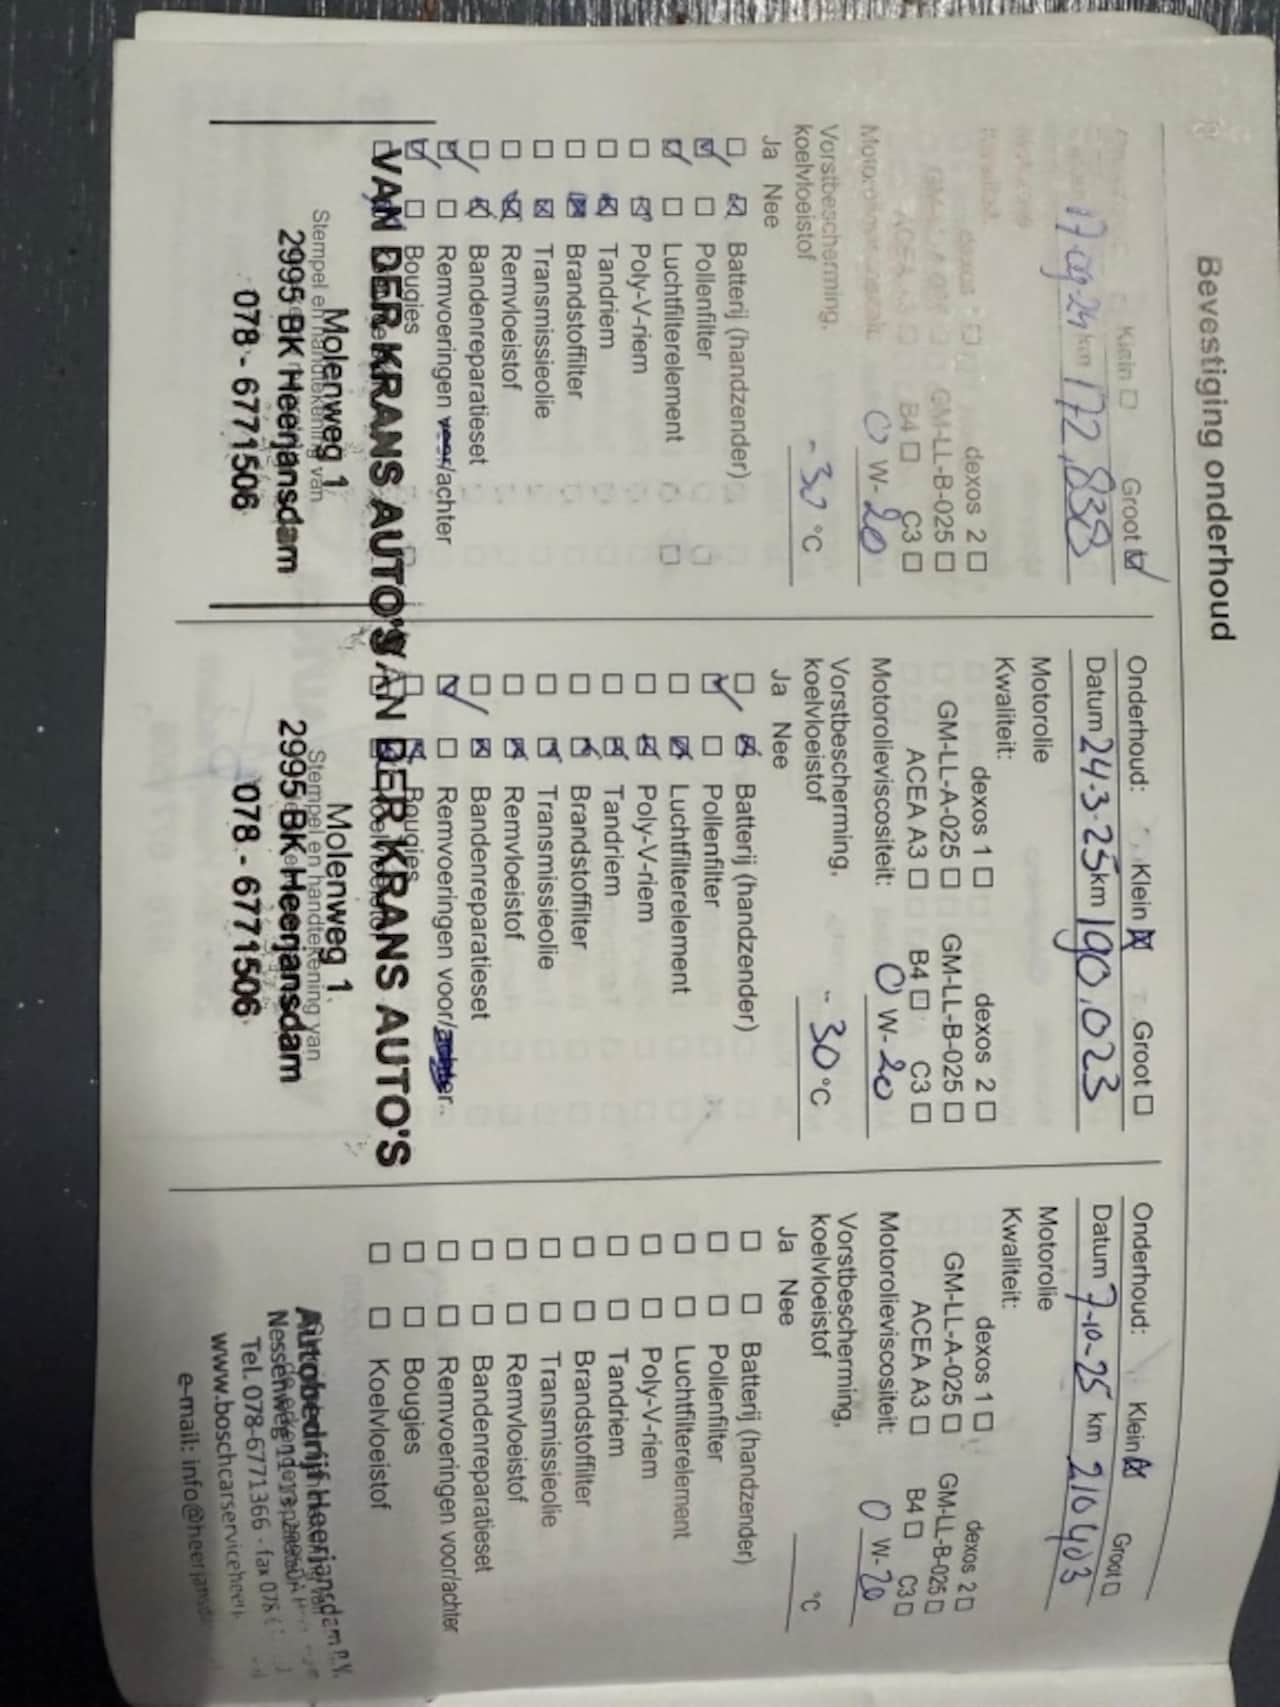 Bevestiging onderhoud
Klein Groot
km 172.838
dexos 2
GM-LL-B-025
B4 C3
0 W-20
Vorstbescherming,
koelvloeistof -30 °C
Ja Nee
Batterij (handzender)
Pollenfilter
Luchtfilterelement
Poly-V-riem
Tandriem
Brandstoffilter
Transmissieolie
Remvloeistof
Bandenreparatieset
Remvoeringen voor/achter
Bougies
VAN DER KRANS AUTO'S
Molenweg 1
Stempel en handtekening van
2995 BK Heerjansdam
078 - 6771506
Onderhoud: Klein Groot
Datum 24-3-25 km 190.023
Motorolie
Kwaliteit:
dexos 1 dexos 2
GM-LL-A-025 GM-LL-B-025
ACEA A3 B4 C3
Motorolieviscositeit: 0 W-20
Vorstbescherming,
koelvloeistof -30 °C
Ja Nee
Batterij (handzender)
Pollenfilter
Luchtfilterelement
Poly-V-riem
Tandriem
Brandstoffilter
Transmissieolie
Remvloeistof
Bandenreparatieset
Remvoeringen voor/achter
Bougies
Koelvloeistof
VAN DER KRANS AUTO'S
Molenweg 1
Stempel en handtekening van
2995 BK Heerjansdam
078 - 6771506
Onderhoud: Klein Groot
Datum 7-10-25 km 210403
Motorolie
Kwaliteit:
dexos 1 dexos 2
GM-LL-A-025 GM-LL-B-025
ACEA A3 B4 C3
Motorolieviscositeit: 0 W-20
Vorstbescherming,
koelvloeistof °C
Ja Nee
Batterij (handzender)
Pollenfilter
Luchtfilterelement
Poly-V-riem
Tandriem
Brandstoffilter
Transmissieolie
Remvloeistof
Bandenreparatieset
Remvoeringen voor/achter
Bougies
Koelvloeistof
Autobedrijf Heerjansdam B.V.
Nesserweg
Tel. 078-6771366 - fax 078
www.boschcarserviceheerj
e-mail: info@heerjansda